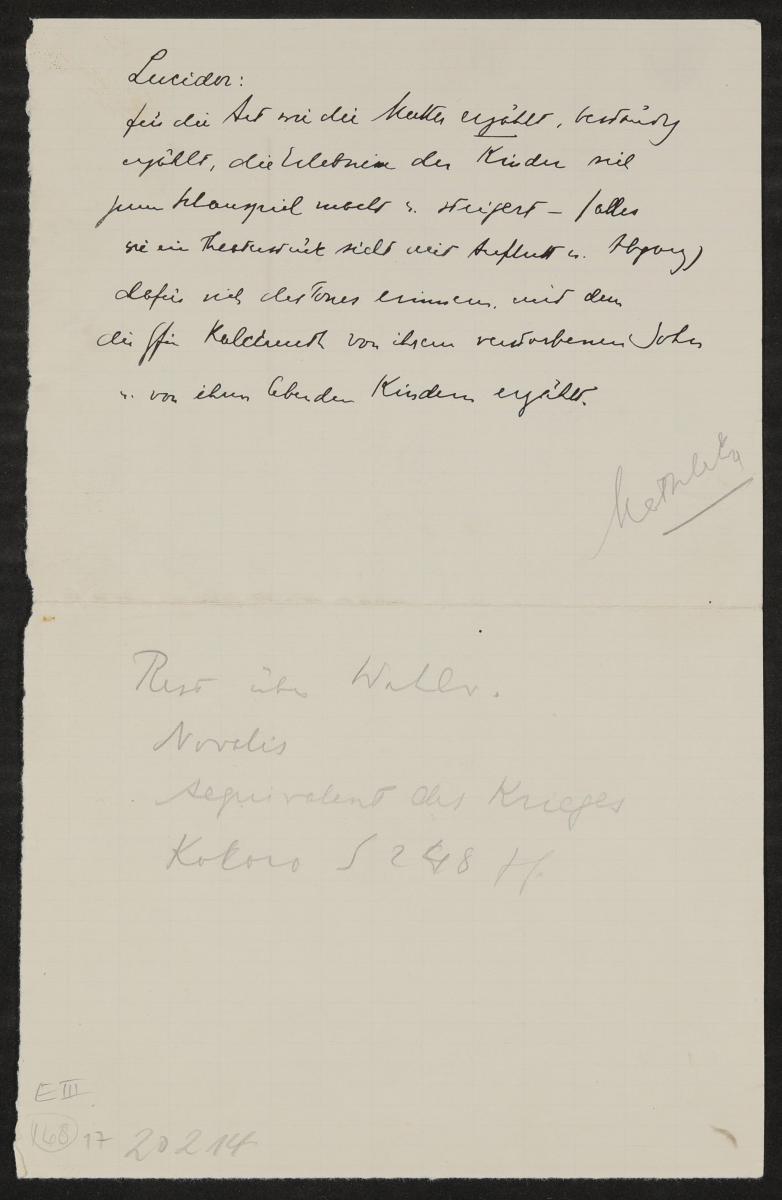 Lucidor:
für die Art wie die Mutter erzählt, beständig
erzählt, die Erlebnisse der Kinder sich
zum Schauspiel macht u. steigert – (alles
wie ein Theaterstück sieht mit Auftritt u. Abgang)
dafür mich des Tones erinnern, mit dem
die Gfin Kalckreuth von ihrem verstorbenen Sohn
u. von ihren lebenden Kindern erzählt.
Rest über
Novalis
Aequivalent des Krieges
Kokoro S 248
E III
168 17 20214